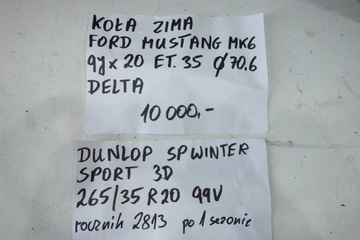 KOŁA ZIMA
FORD MUSTANG MK6
9J x 20 ET.35 Ø70.6
DELTA
10 000,-
DUNLOP SP WINTER
SPORT 3D
265/35 R20 99V
rocznik 2813 po 1 sezonie